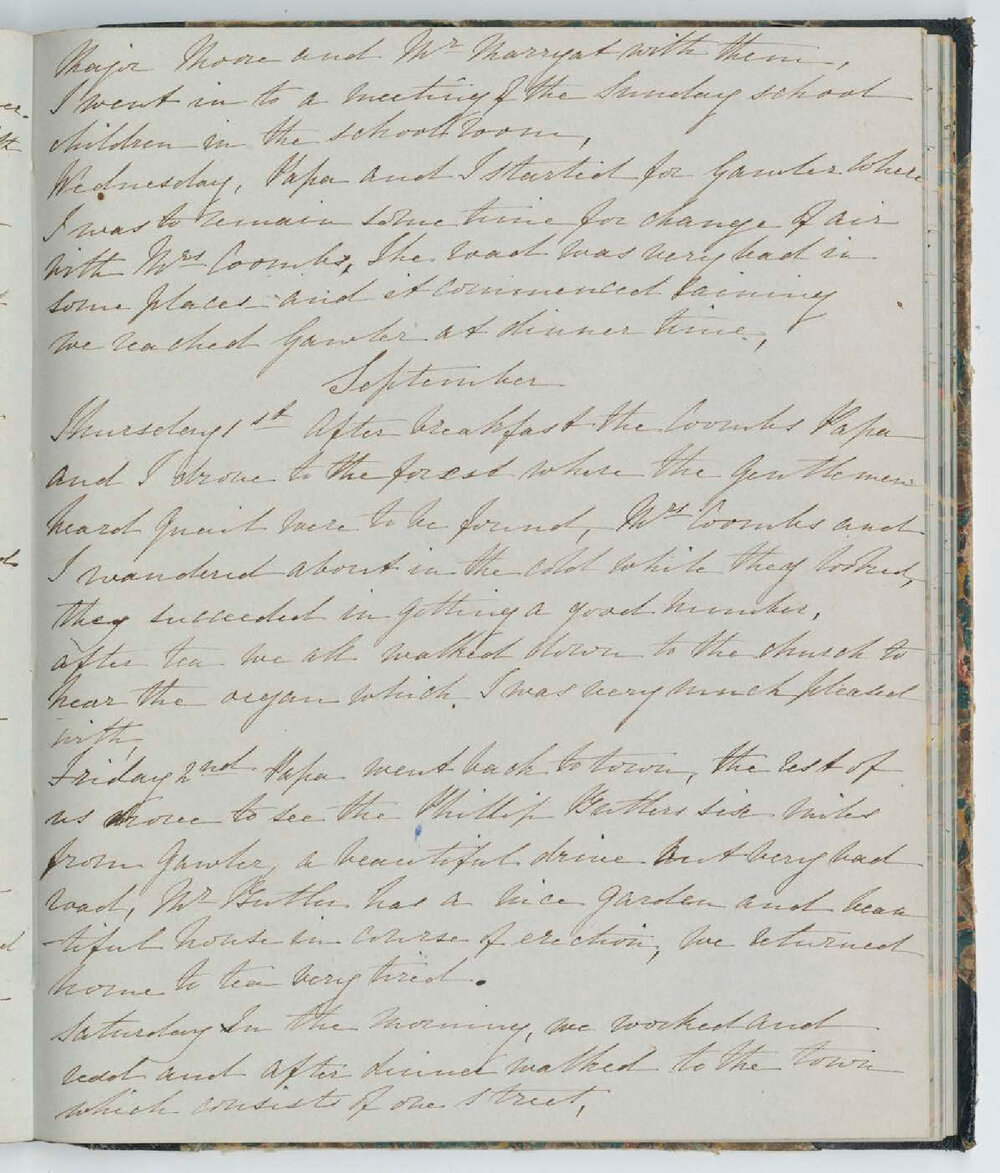 Major Moore and Mr Marryat with them,
I went in to a meeting of the Sunday school
children in the school room,
Wednesday, Papa and I started for Gawler where
I was to remain some time for change of air
with Mrs Coombs, The road was very bad in
some places and it commenced raining
we reached Gawler at dinner time,
September
Thursday 1st After breakfast the Coombs Papa
and I drove to the forest where the gentlemen
heard Quail were to be found, Mrs Coombs and
I wandered about in the cold while they looked,
they succeeded in getting a good number,
after tea we all walked down to the church to
hear the organ which I was very much pleased
with,
Friday 2nd Papa went back to town, the rest of
us drove to see the Phillip Butlers six miles
from Gawler, a beautiful drive but very bad
road, Mr Butler has a nice garden and beau
-tiful house in course of erection, we returned
home to tea very tired.
Saturday In the morning, we worked and
read and after dinner walked to the town
which consists of one street,